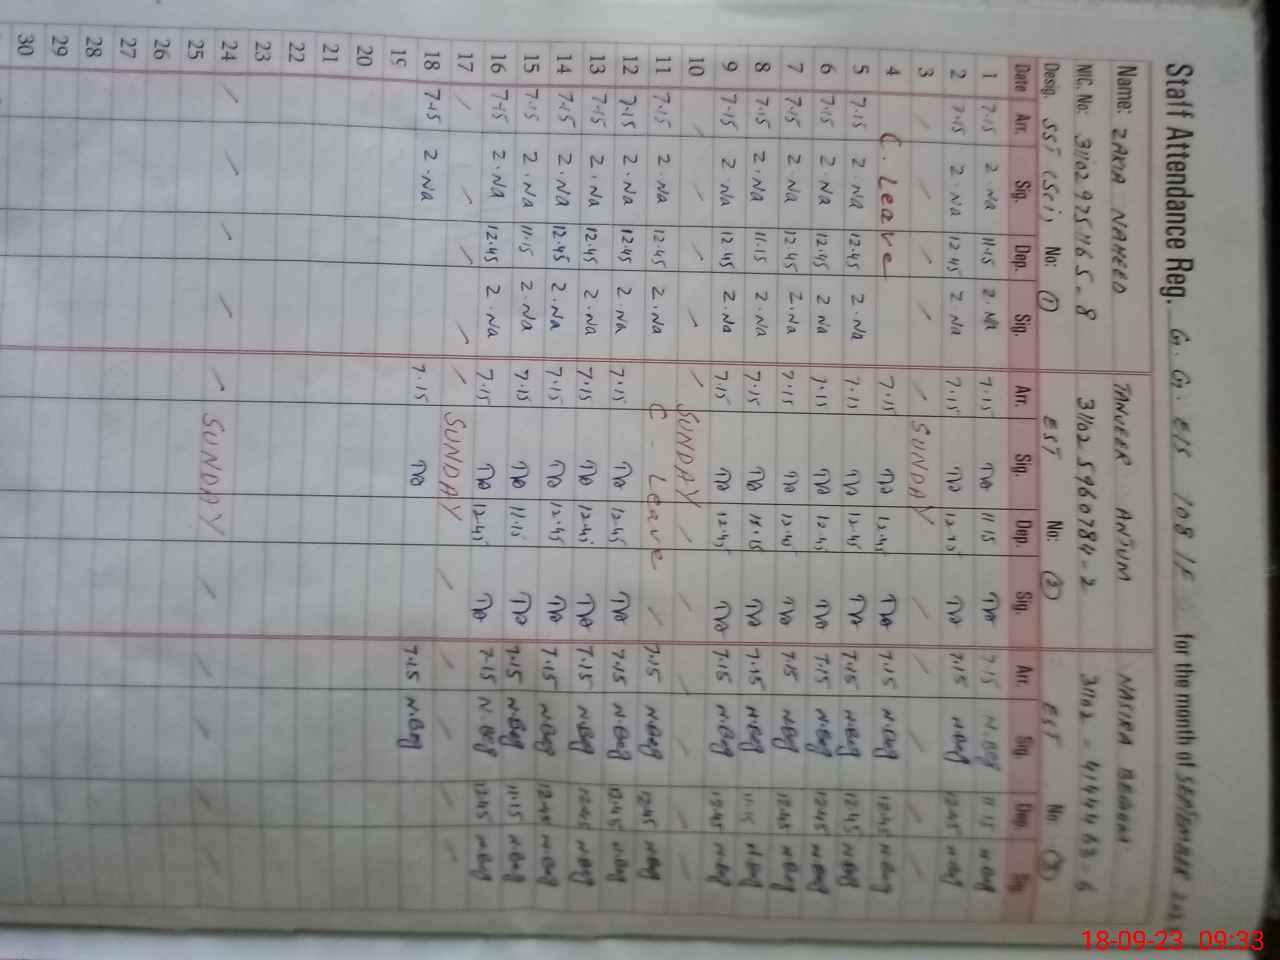 Staff Attendance Reg. G. G. E/S 108 1F for the month of SEPTEMBER
Name: ZAKIA NAHEED TANVEER ANJUM NASIRA BEGUM
NIC. No: 31102 5960784-2 31102 - 4144463-6
Desig. SST (Sci) No: 1 EST No: 2 EST No: 3
Date Arr. Sig. Dep. Sig. Arr. Sig. Dep. Sig. Arr. Sig. Dep. Sig.
1 7.15 2.Na 11.15 2.Na 7.15 11 15 7.15 N.Beg 11 15 N.Beg
2 7.15 2.Na 12.45 2 Na 7.15 12.45 7.15 N.Beg 12.45 N.Beg
3 SUNDAY
4 C. Leave 7.15 12.45 7.15 N.Beg 12.45 N.Beg
5 7.15 2.Na 12.45 2.Na 7.15 12.45 7.15 N.Beg 12.45 N.Beg
6 7.15 2 Na 12.45 2 Na 7.15 12.45 7.15 N.Beg 12.45 N.Beg
7 7.15 2.Na 12.45 2.Na 7.15 12.45 7.15 N.Beg 12.45 N.Beg
8 7.15 2.Na 11.15 2.Na 7.15 11.15 7.15 N.Beg 11.15 N.Beg
9 7.15 2.Na 12.45 2.Na 7.15 12.45 7.15 N.Beg 12.45 N.Beg
10 SUNDAY
11 7.15 2.Na 12.45 2.Na C. Leave 7.15 N.Beg 12.45 N.Beg
12 7.15 2.Na 12.45 2.Na 7.15 12.45 7.15 N.Beg 12.45 N.Beg
13 7.15 2.Na 12.45 2.Na 7.15 12.45 7.15 N.Beg 12.45 N.Beg
14 7.15 2.Na 12.45 2.Na 7.15 12.45 7.15 N.Beg 12.45 N.Beg
15 7.15 2.Na 11.15 2.Na 7.15 11.15 7.15 N.Beg 11.15 N.Beg
16 7.15 2.Na 12.45 2.Na 7.15 12.45 7.15 N.Beg 12.45 N.Beg
17 SUNDAY
18 7.15 2.Na 7.15 7.15 N.Beg
19
20
21
22
23
24 SUNDAY
25
26
27
28
29
30
18-09-23 09:33